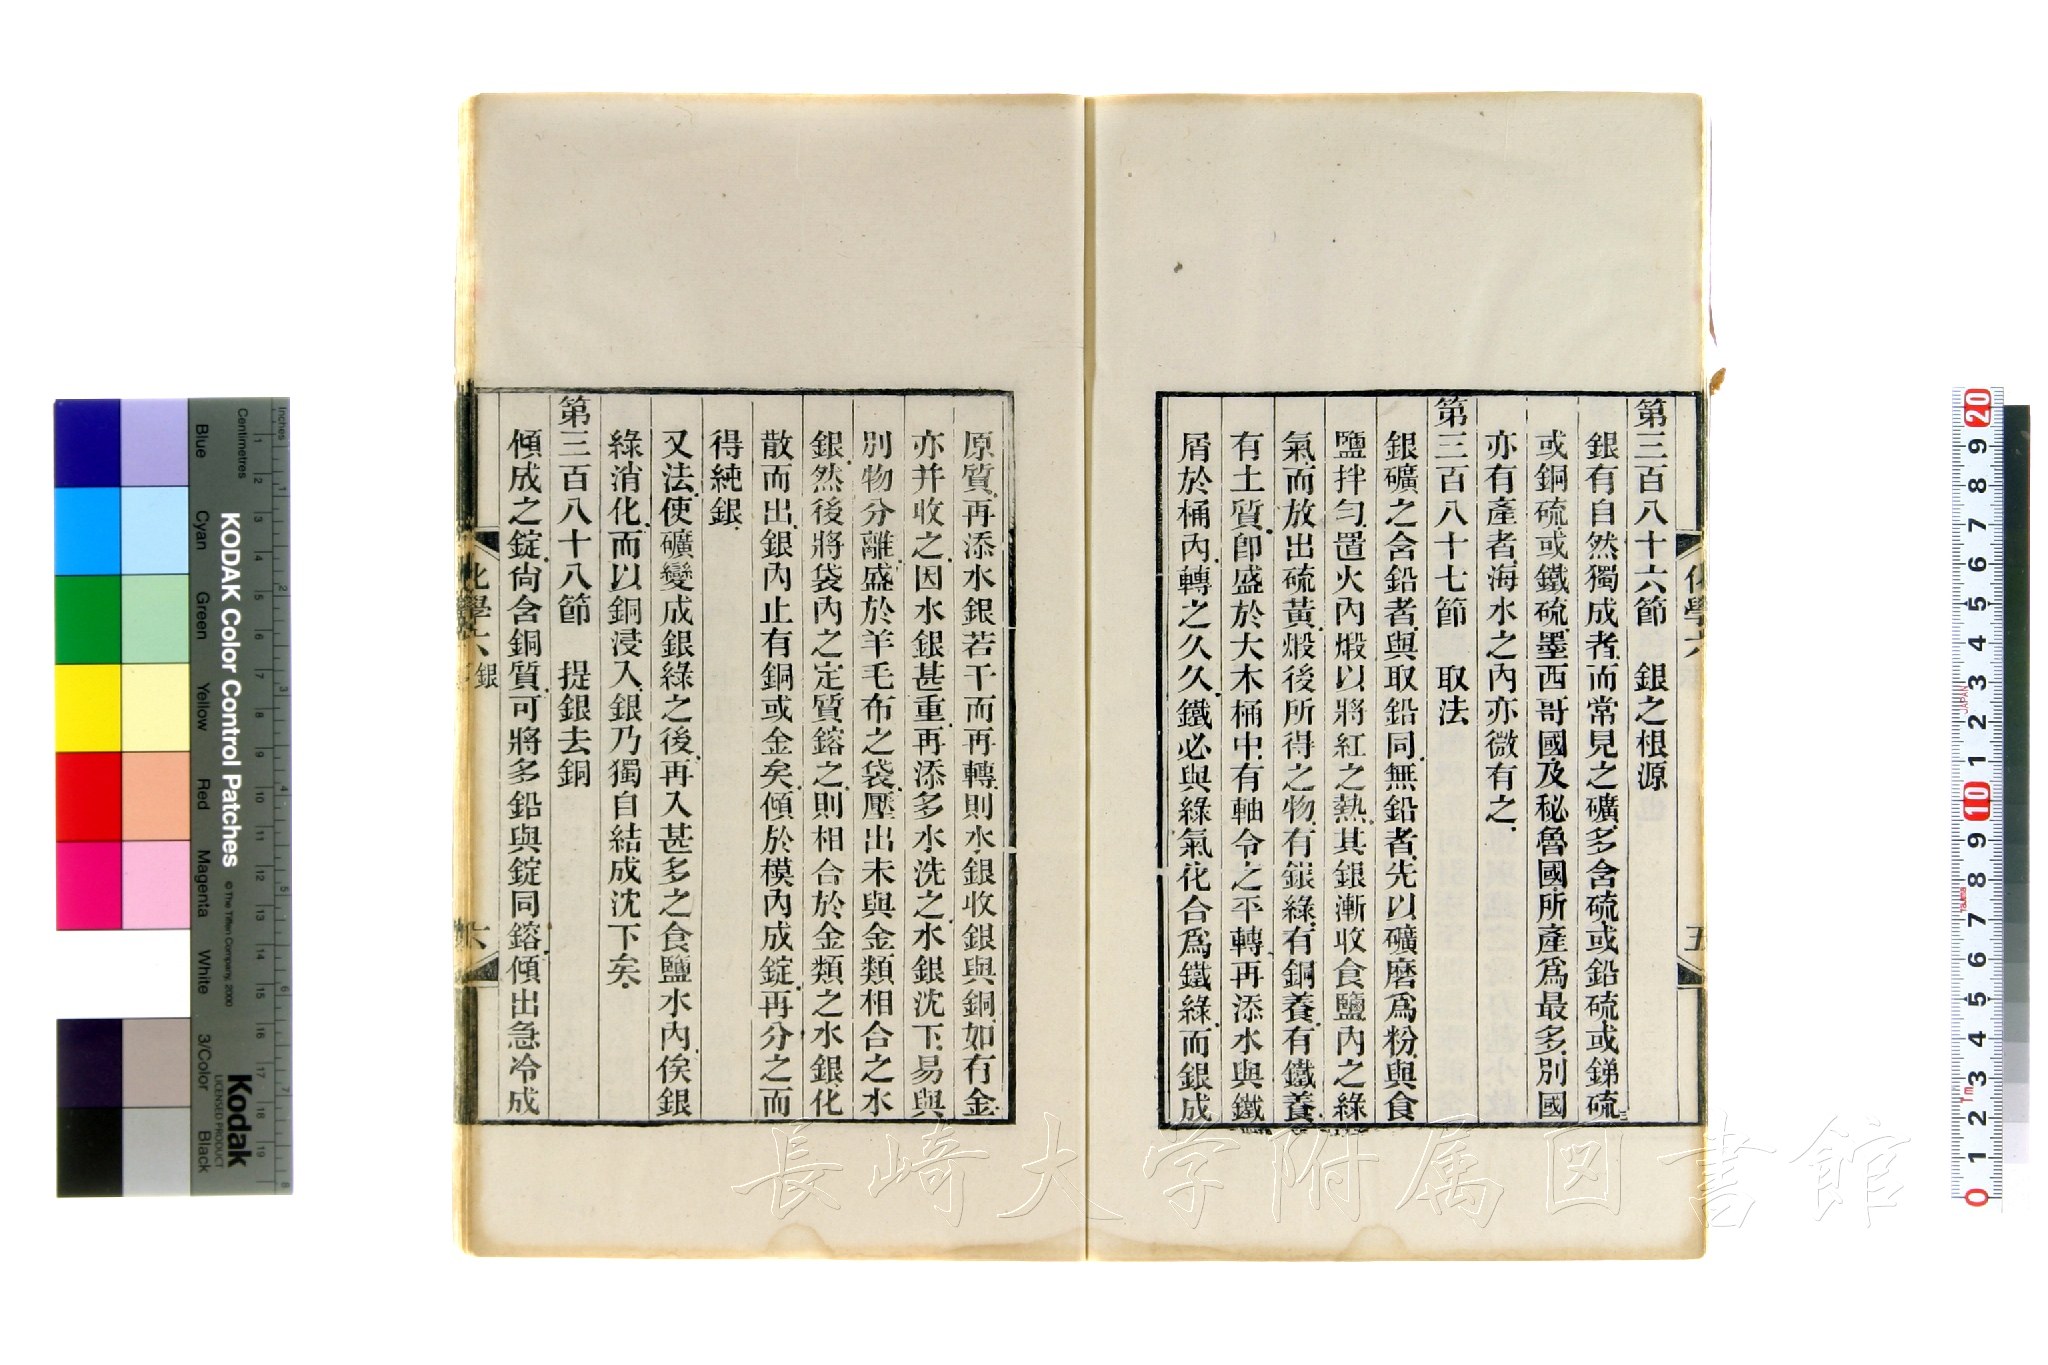 第三百八十六節　銀之根源
銀有自然獨成者、而常見之礦、多含硫、或鉛硫、或銻硫、
或銅硫、或鐵硫、墨西哥國、及秘魯國、所產爲最多、別國
亦有產者、海水之內亦微有之、
第三百八十七節　取法
銀礦之含鉛者、與取鉛同、無鉛者、先以礦磨爲粉、與食
鹽拌勻、置火內煅以將紅之熱、其銀漸收食鹽內之綠
氣、而放出硫黃、煅後所得之物、有銀綠、有銅養、有鐵養、
有土質、卽盛於大木桶中、有軸令之平轉、再添水與鐵
屑於桶內、轉之久久、鐵必與綠氣化合爲鐵綠、而銀成
化學六
五
原質、再添水銀若干而再轉、則水銀收銀與銅、如有金、
亦并收之、因水銀甚重、再添多水洗之、水銀沈下、易與
別物分離、盛於羊毛布之袋、壓出未與金類相合之水
銀、然後將袋內之定質鎔之、則相合於金類之水銀、化
散而出、銀內止有銅或金矣、傾於模內成錠、再分之而
得純銀、
又法、使礦變成銀綠之後、再入甚多之食鹽水內、俟銀
綠消化、而以銅浸入、銀乃獨自結成沈下矣、
第三百八十八節　提銀去銅
傾成之錠、尙含銅質、可將多鉛與錠同鎔、傾出急冷成
化學六　銀
六
長崎大学附属図書館
KODAK Color Control Patches
© The Tiffen Company, 2000
Kodak
LICENSED PRODUCT
Inches
Centimetres
Blue
Cyan
Green
Yellow
Red
Magenta
White
3/Color
Black
JAPAN